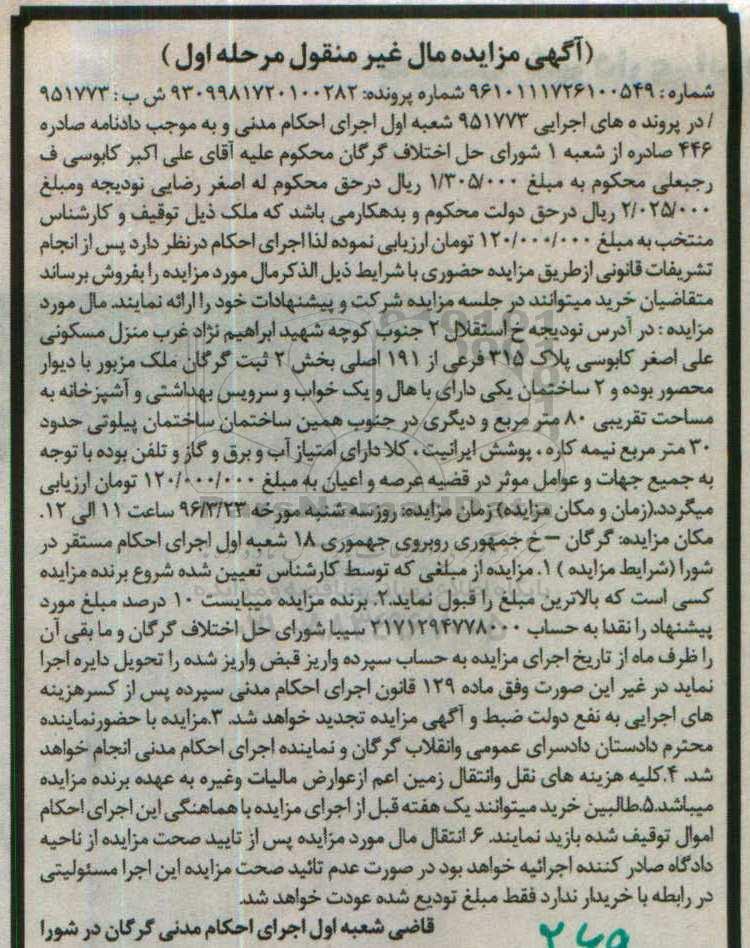 (آگهی مزایده مال غیر منقول مرحله اول)
شماره: ۹۶۱۰۱۱۱۷۲۶۱۰۰۵۴۹ شماره پرونده: ۹۳۰۹۹۸۱۷۲۰۱۰۰۲۸۲ ش ب: ۹۵۱۷۷۳
/ در پرونده های اجرایی ۹۵۱۷۷۳ شعبه اول اجرای احکام مدنی و به موجب دادنامه صادره
۴۴۶ صادره از شعبه ۱ شورای حل اختلاف گرگان محکوم علیه آقای علی اکبر کابوسی ف
رجبعلی محکوم به مبلغ ۱/۳۰۵/۰۰۰ ریال درحق محکوم له اصغر رضایی نودیجه ومبلغ
۲/۰۲۵/۰۰۰ ریال درحق دولت محکوم و بدهکارمی باشد که ملک ذیل توقیف و کارشناس
منتخب به مبلغ ۱۲۰/۰۰۰/۰۰۰ تومان ارزیابی نموده لذا اجرای احکام درنظر دارد پس از انجام
تشریفات قانونی ازطریق مزایده حضوری با شرایط ذیل الذکرمال مورد مزایده را بفروش برساند
متقاضیان خرید میتوانند در جلسه مزایده شرکت و پیشنهادات خود را ارائه نمایند. مال مورد
مزایده : در آدرس نودیجه خ استقلال ۲ جنوب کوچه شهید ابراهیم نژاد غرب منزل مسکونی
علی اصغر کابوسی پلاک ۳۱۵ فرعی از ۱۹۱ اصلی بخش ۲ ثبت گرگان ملک مزبور با دیوار
محصور بوده و ۲ ساختمان یکی دارای با هال و یک خواب و سرویس بهداشتی و آشپزخانه به
مساحت تقریبی ۸۰ متر مربع و دیگری در جنوب همین ساختمان ساختمان پیلوتی حدود
۳۰ متر مربع نیمه کاره ، پوشش ایرانیت ، کلا دارای امتیاز آب و برق و گاز و تلفن بوده با توجه
به جمیع جهات و عوامل موثر در قضیه عرصه و اعیان به مبلغ ۱۲۰/۰۰۰/۰۰۰ تومان ارزیابی
میگردد.(زمان و مکان مزایده) زمان مزایده: روزسه شنبه مورخه ۹۶/۳/۲۳ ساعت ۱۱ الی ۱۲.
مکان مزایده: گرگان – خ جمهوری روبروی جهموری ۱۸ شعبه اول اجرای احکام مستقر در
شورا (شرایط مزایده ) ۱. مزایده از مبلغی که توسط کارشناس تعیین شده شروع برنده مزایده
کسی است که بالاترین مبلغ را قبول نماید.۲. برنده مزایده میبایست ۱۰ درصد مبلغ مورد
پیشنهاد را نقدا به حساب ۲۱۷۱۲۹۴۷۷۸۰۰۰ سیبا شورای حل اختلاف گرگان و ما بقی آن
را ظرف ماه از تاریخ اجرای مزایده به حساب سپرده واریز قبض واریز شده را تحویل دایره اجرا
نماید در غیر این صورت وفق ماده ۱۲۹ قانون اجرای احکام مدنی سپرده پس از کسرهزینه
های اجرایی به نفع دولت ضبط و آگهی مزایده تجدید خواهد شد. ۳.مزایده با حضورنماینده
محترم دادستان دادسرای عمومی وانقلاب گرگان و نماینده اجرای احکام مدنی انجام خواهد
شد. ۴.کلیه هزینه های نقل وانتقال زمین اعم ازعوارض مالیات وغیره به عهده برنده مزایده
میباشد.۵.طالبین خرید میتوانند یک هفته قبل از اجرای مزایده با هماهنگی این اجرای احکام
اموال توقیف شده بازید نمایند. ۶. انتقال مال مورد مزایده پس از تایید صحت مزایده از ناحیه
دادگاه صادر کننده اجرائیه خواهد بود در صورت عدم تائید صحت مزایده این اجرا مسئولیتی
در رابطه با خریدار ندارد فقط مبلغ تودیع شده عودت خواهد شد.
قاضی شعبه اول اجرای احکام مدنی گرگان در شورا